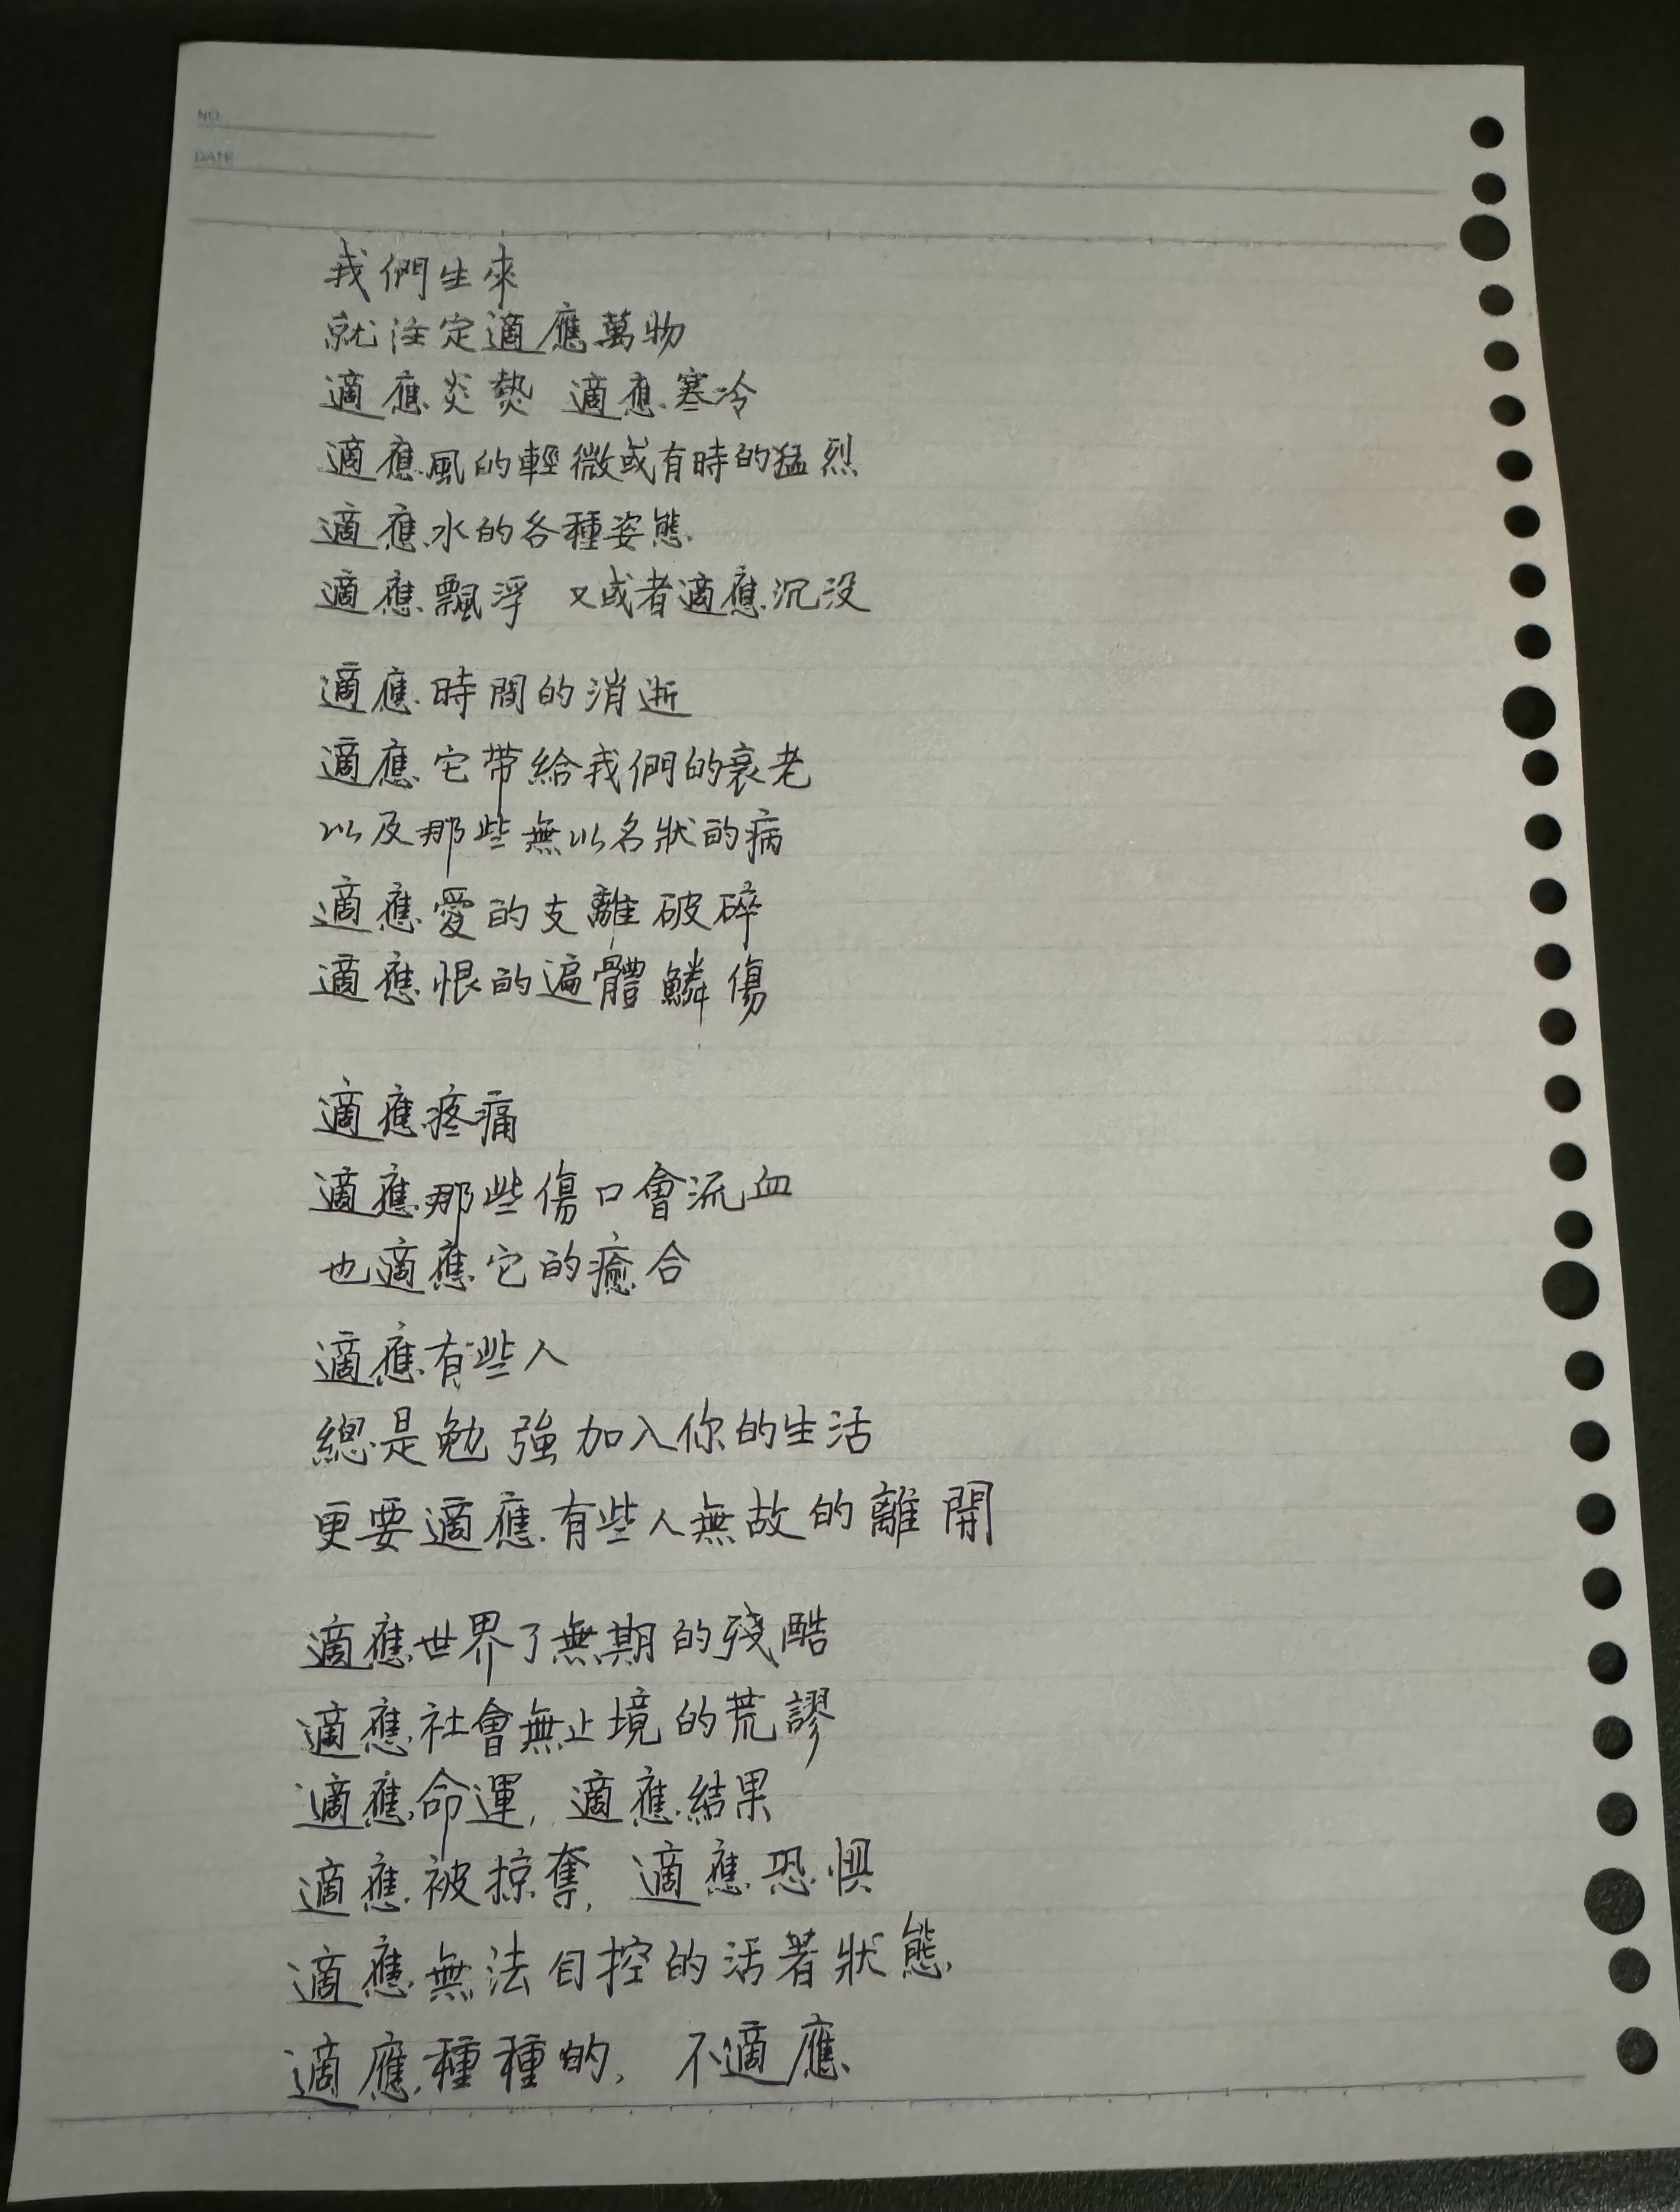 NO.
DATE
我們生來
就注定適應萬物
適應炎熱 適應寒冷
適應風的輕微或有時的猛烈
適應水的各種姿態
適應飄浮 又或者適應沉没
適應時間的消逝
適應它帶給我們的衰老
以及那些無以名狀的病
適應愛的支離破碎
適應恨的遍體鱗傷
適應疼痛
適應那些傷口會流血
也適應它的癒合
適應有些人
總是勉強加入你的生活
更要適應有些人無故的離開
適應世界了無期的殘酷
適應社會無止境的荒謬
適應命運，適應結果
適應被掠奪，適應恐惧
適應無法自控的活著狀態
適應種種的，不適應